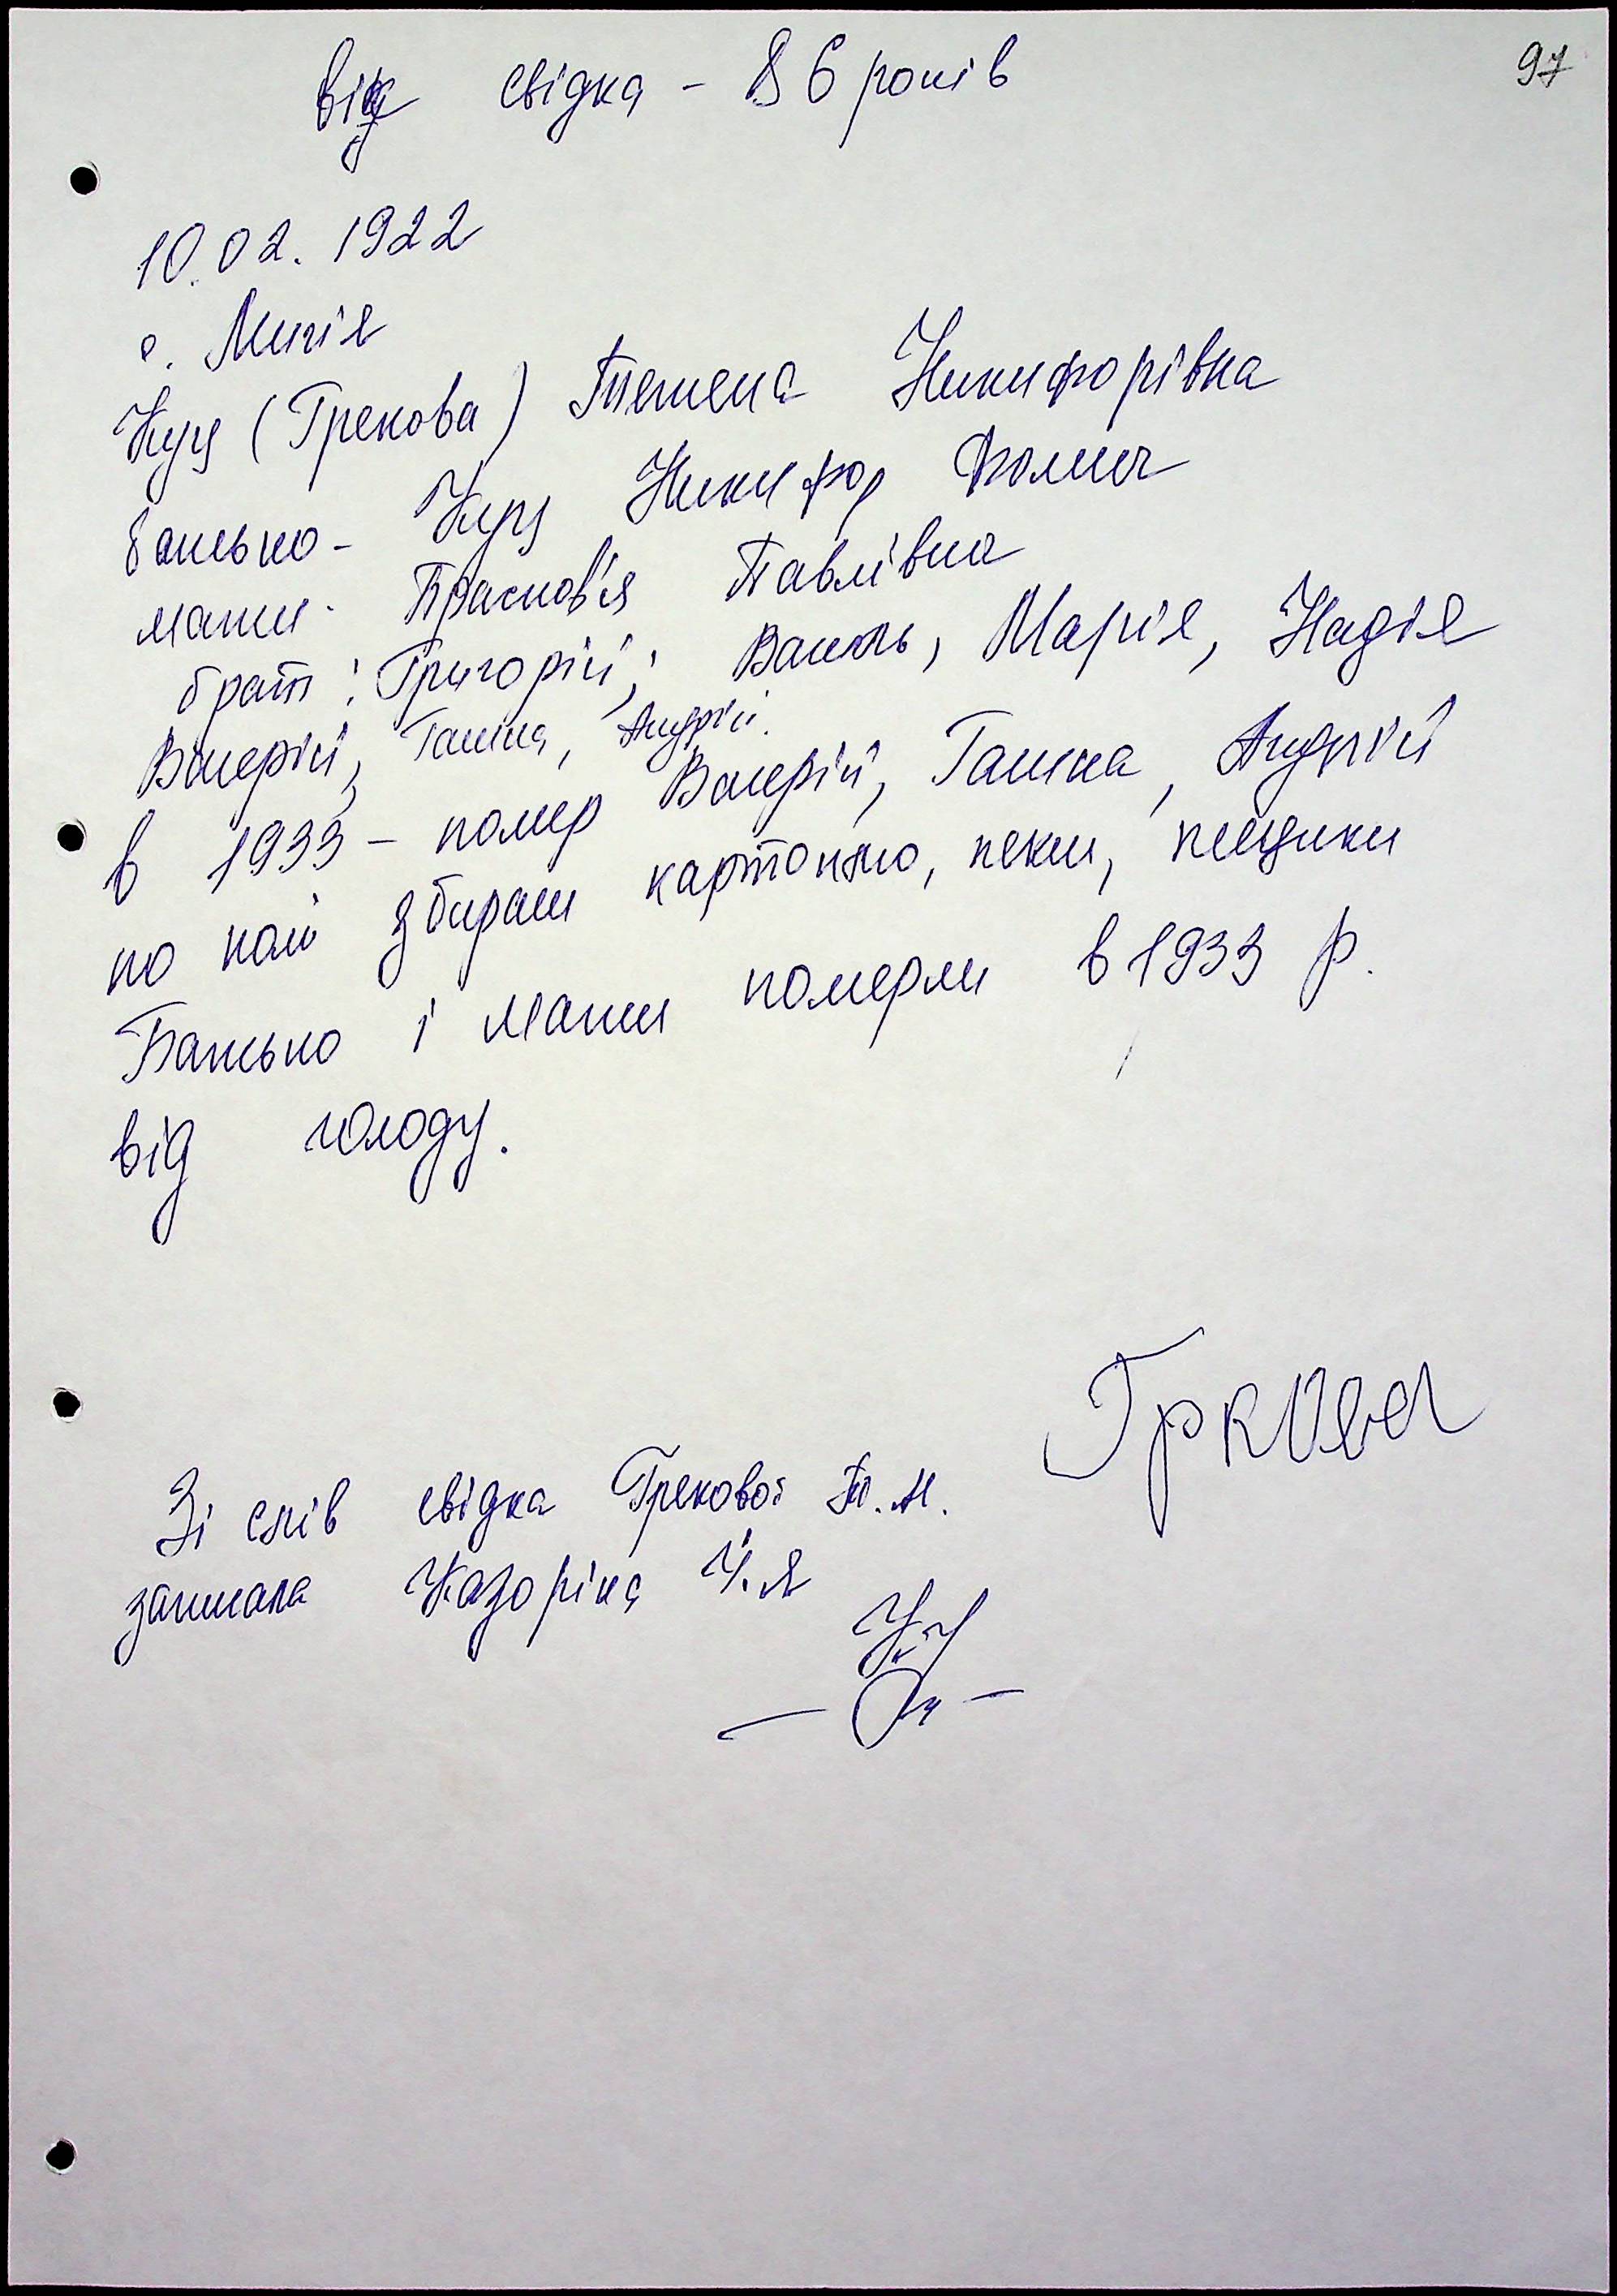 97
від свідка - 86 років
10.02.1922
с. Мигія
Куц (Грекова) Никифорівна
батько - Куц Никифор Фомич
мати - Прасков'я Павлівна
брат: Григорій; Василь, Марія, Надія
Валерій, Галина, Андрій.
в 1933 - помер Валерій, Галина, Андрій
по полі збирали картоплю, пекли,
Батько і мати померли в 1933 р.
від голоду.
Гркова
Зі слів свідка Грекової Т.Н.
записала Казоріна